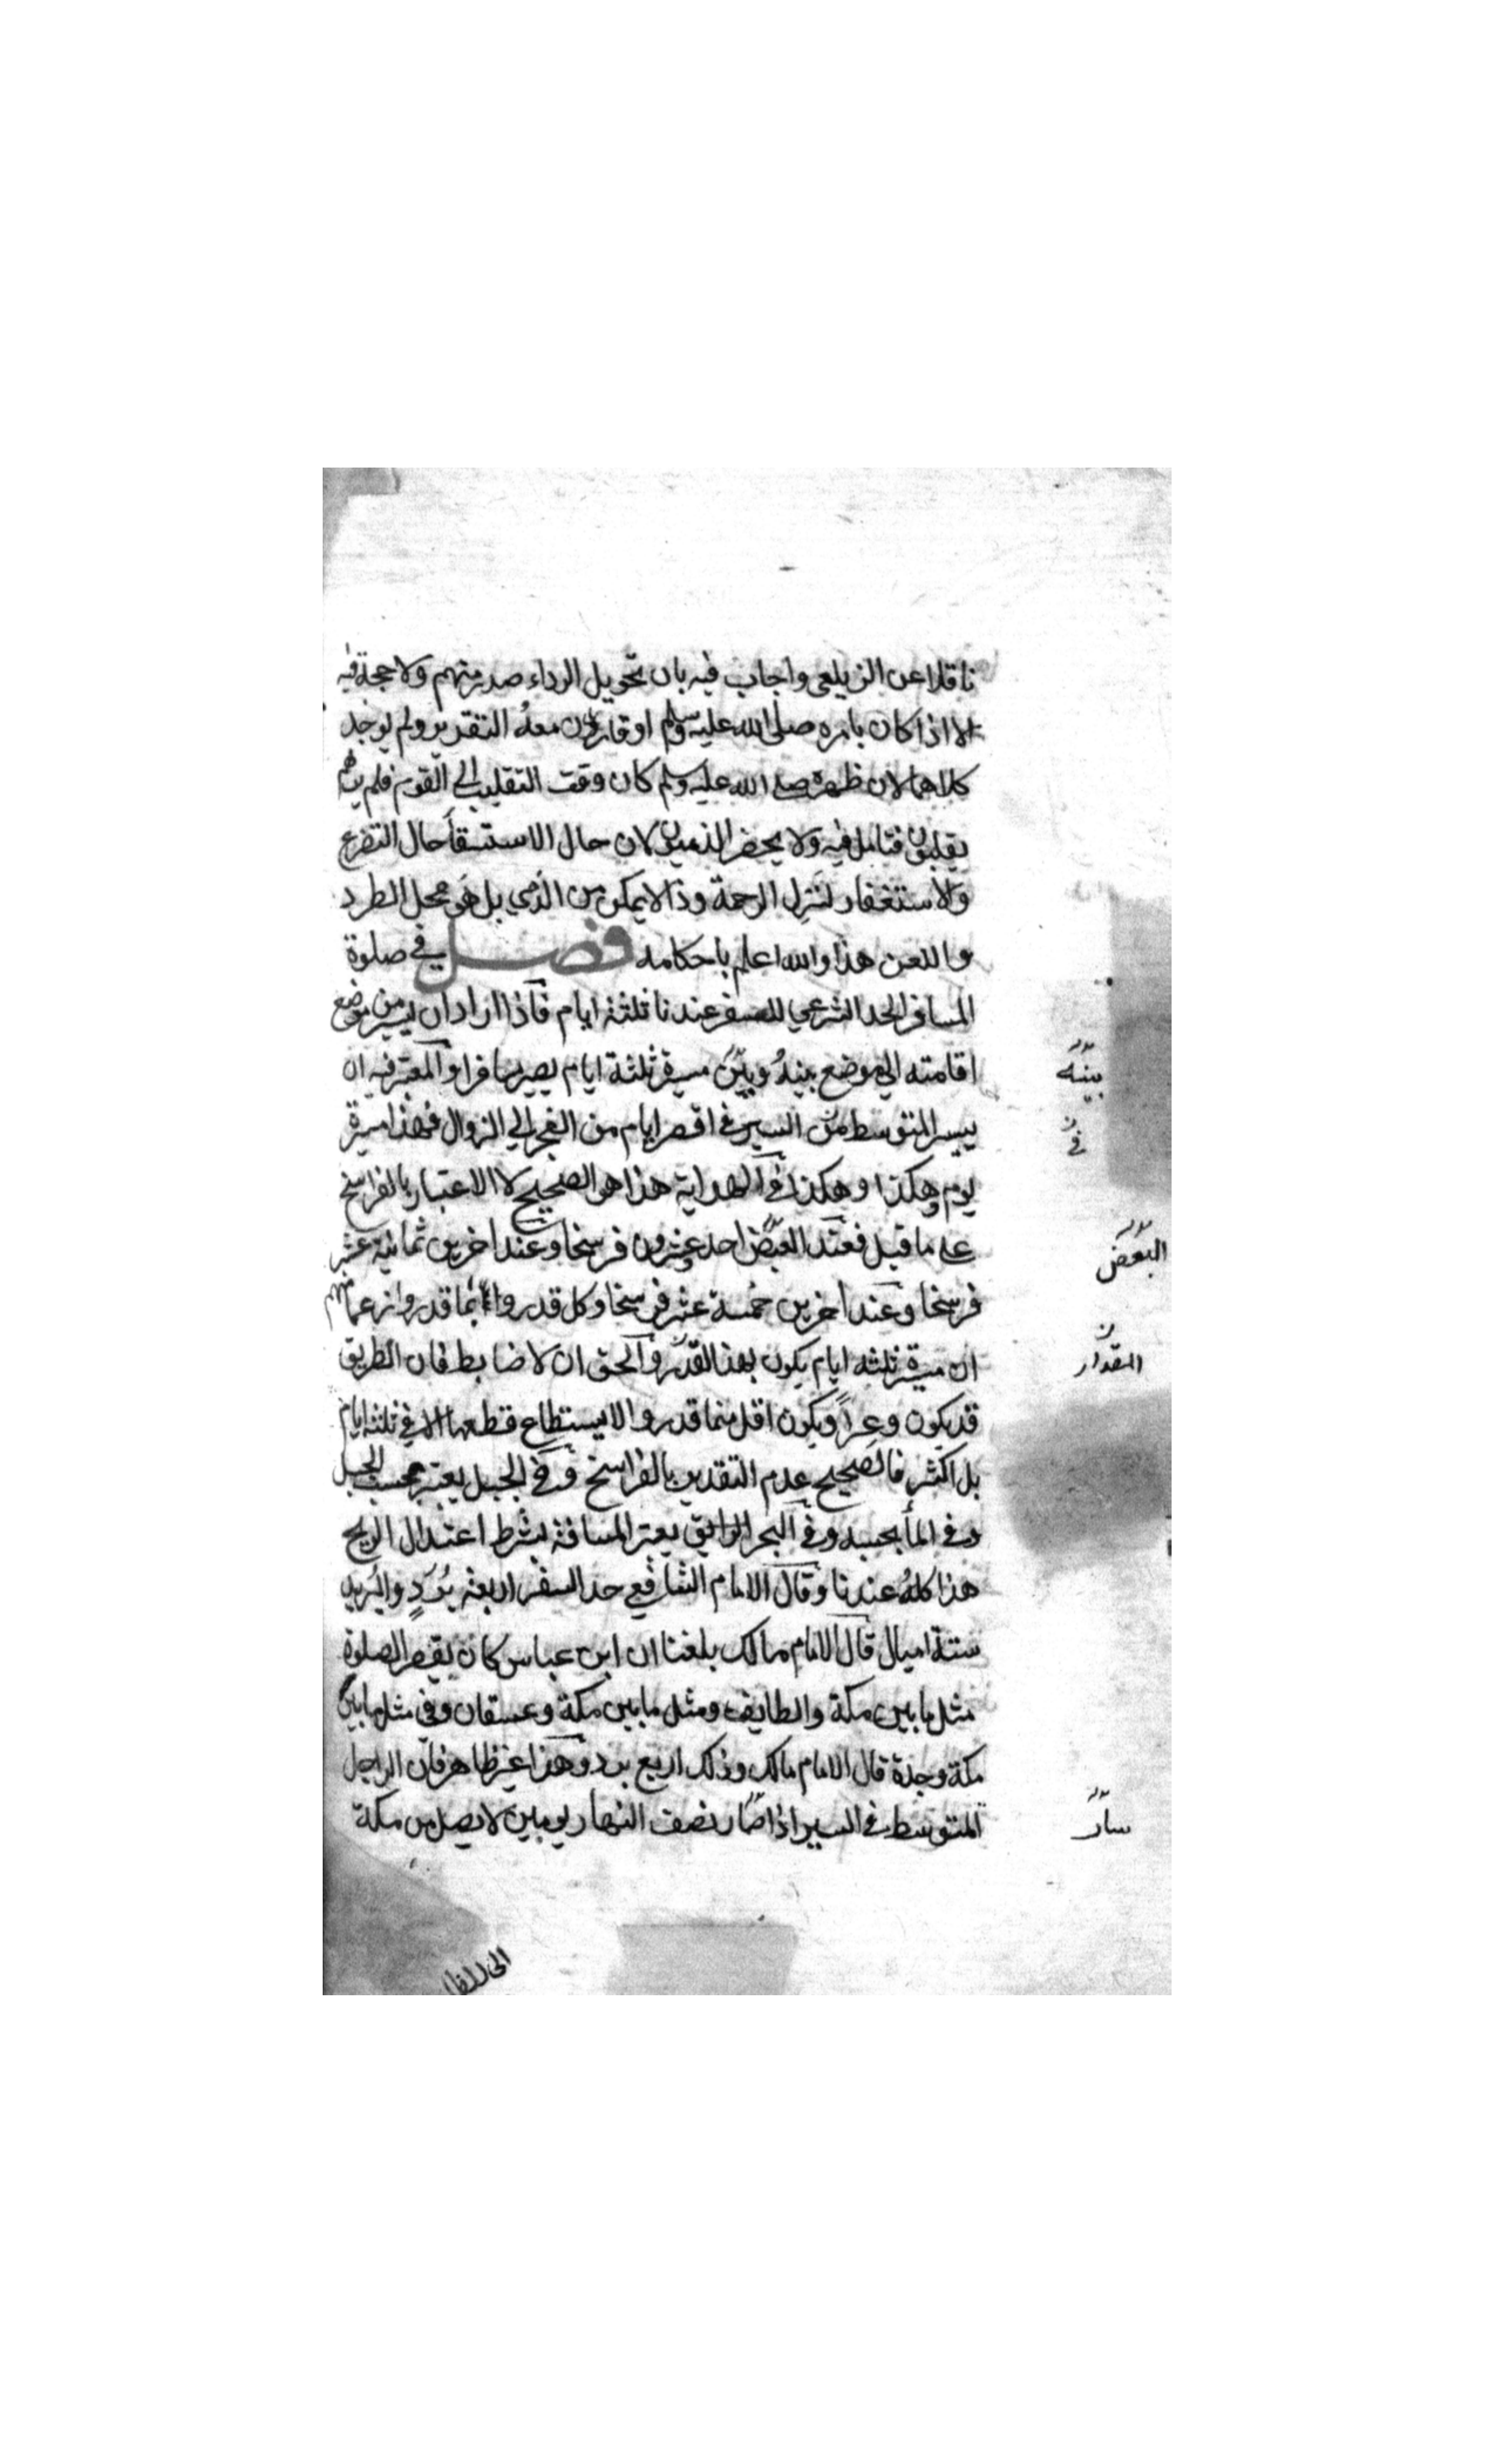 ناقلا عن الزيلعي واجاب فيه بان تحويل الرداء صدر منهم ولا حجة فيه
الا اذا كان بامره صلى الله عليه وسلم او قارن معه التقرير ولم يوجد
كلاهما لان ظهره صلى الله عليه وسلم كان وقت التقليب الى القوم فلم
يقلبون فتامل فيه ولا يحضر الذميون لان حال الاستسقا حال التضرع
والاستغفار لتنزل الرحمة وذا لا يمكن من الذمي بل هو محل الطرد
واللعن هذا والله اعلم باحكامه فصل في صلوة
المسافر الحد الشرعي للسفر عندنا ثلثة ايام فاذا اراد ان يسير من موضع
اقامته الى موضع بينهُ وبين مسيرة ثلثة ايام يصير مسافرا والمعتبر فيه ان
يسير المتوسط من السير في اقصر ايام من الفجر الى الزوال فهذا مسيرة
يوم وهكذا وهكذا في الهداية هذا هو الصحيح لا الاعتبار بالفراسخ
على ما قيل فعند البعض احد وعشرون فرسخا وعند اخرين ثمانية عشر
فرسخا وعند اخرين خمسة عشر فرسخا وكل قدروا بما قدروا زعما منهم
ان مسيرة ثلثه ايام يكون بهذا القدر والحق ان لا ضابط فان الطريق
قد يكون وعرا ويكون اقل مما قدروا لا يستطاع قطعها الا في ثلثه ايام
بل اكثر فالصحيح عدم التقدير بالفراسخ وفي الجبل يعتبر بحسب الجبل
وفي الما بحسبه وفي البحر الرايق يعتبر المسافة بشرط اعتدال الريح
هذا كلهُ عندنا وقال الامام الشافعي حد السفر اربعة بُرُدٍ والبريد
ستة اميال قال الامام مالك بلغنا ان ابن عباس كان يقصر الصلوة
مثل ما بين مكة والطايف ومثل ما بين مكة وعسقان وفي مثل ما بين
مكة وجدة قال الامام مالك وذلك اربع برد وهذا غير ظاهر فان الراجل
المتوسط في السير اذا صار نصف النهار يومين لا يصل من مكة
بينه
في
البعض
المقدار
سار